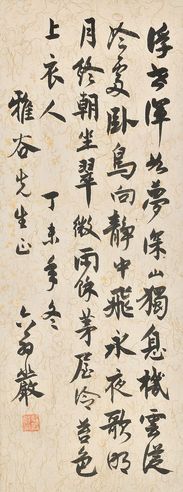 浮世渾如夢深山獨息機雲從
冷處臥鳥向靜中飛永夜歌明
月終朝坐翠微雨餘茅屋冷苔色
上衣人 丁未年冬
雅谷先生正
巖